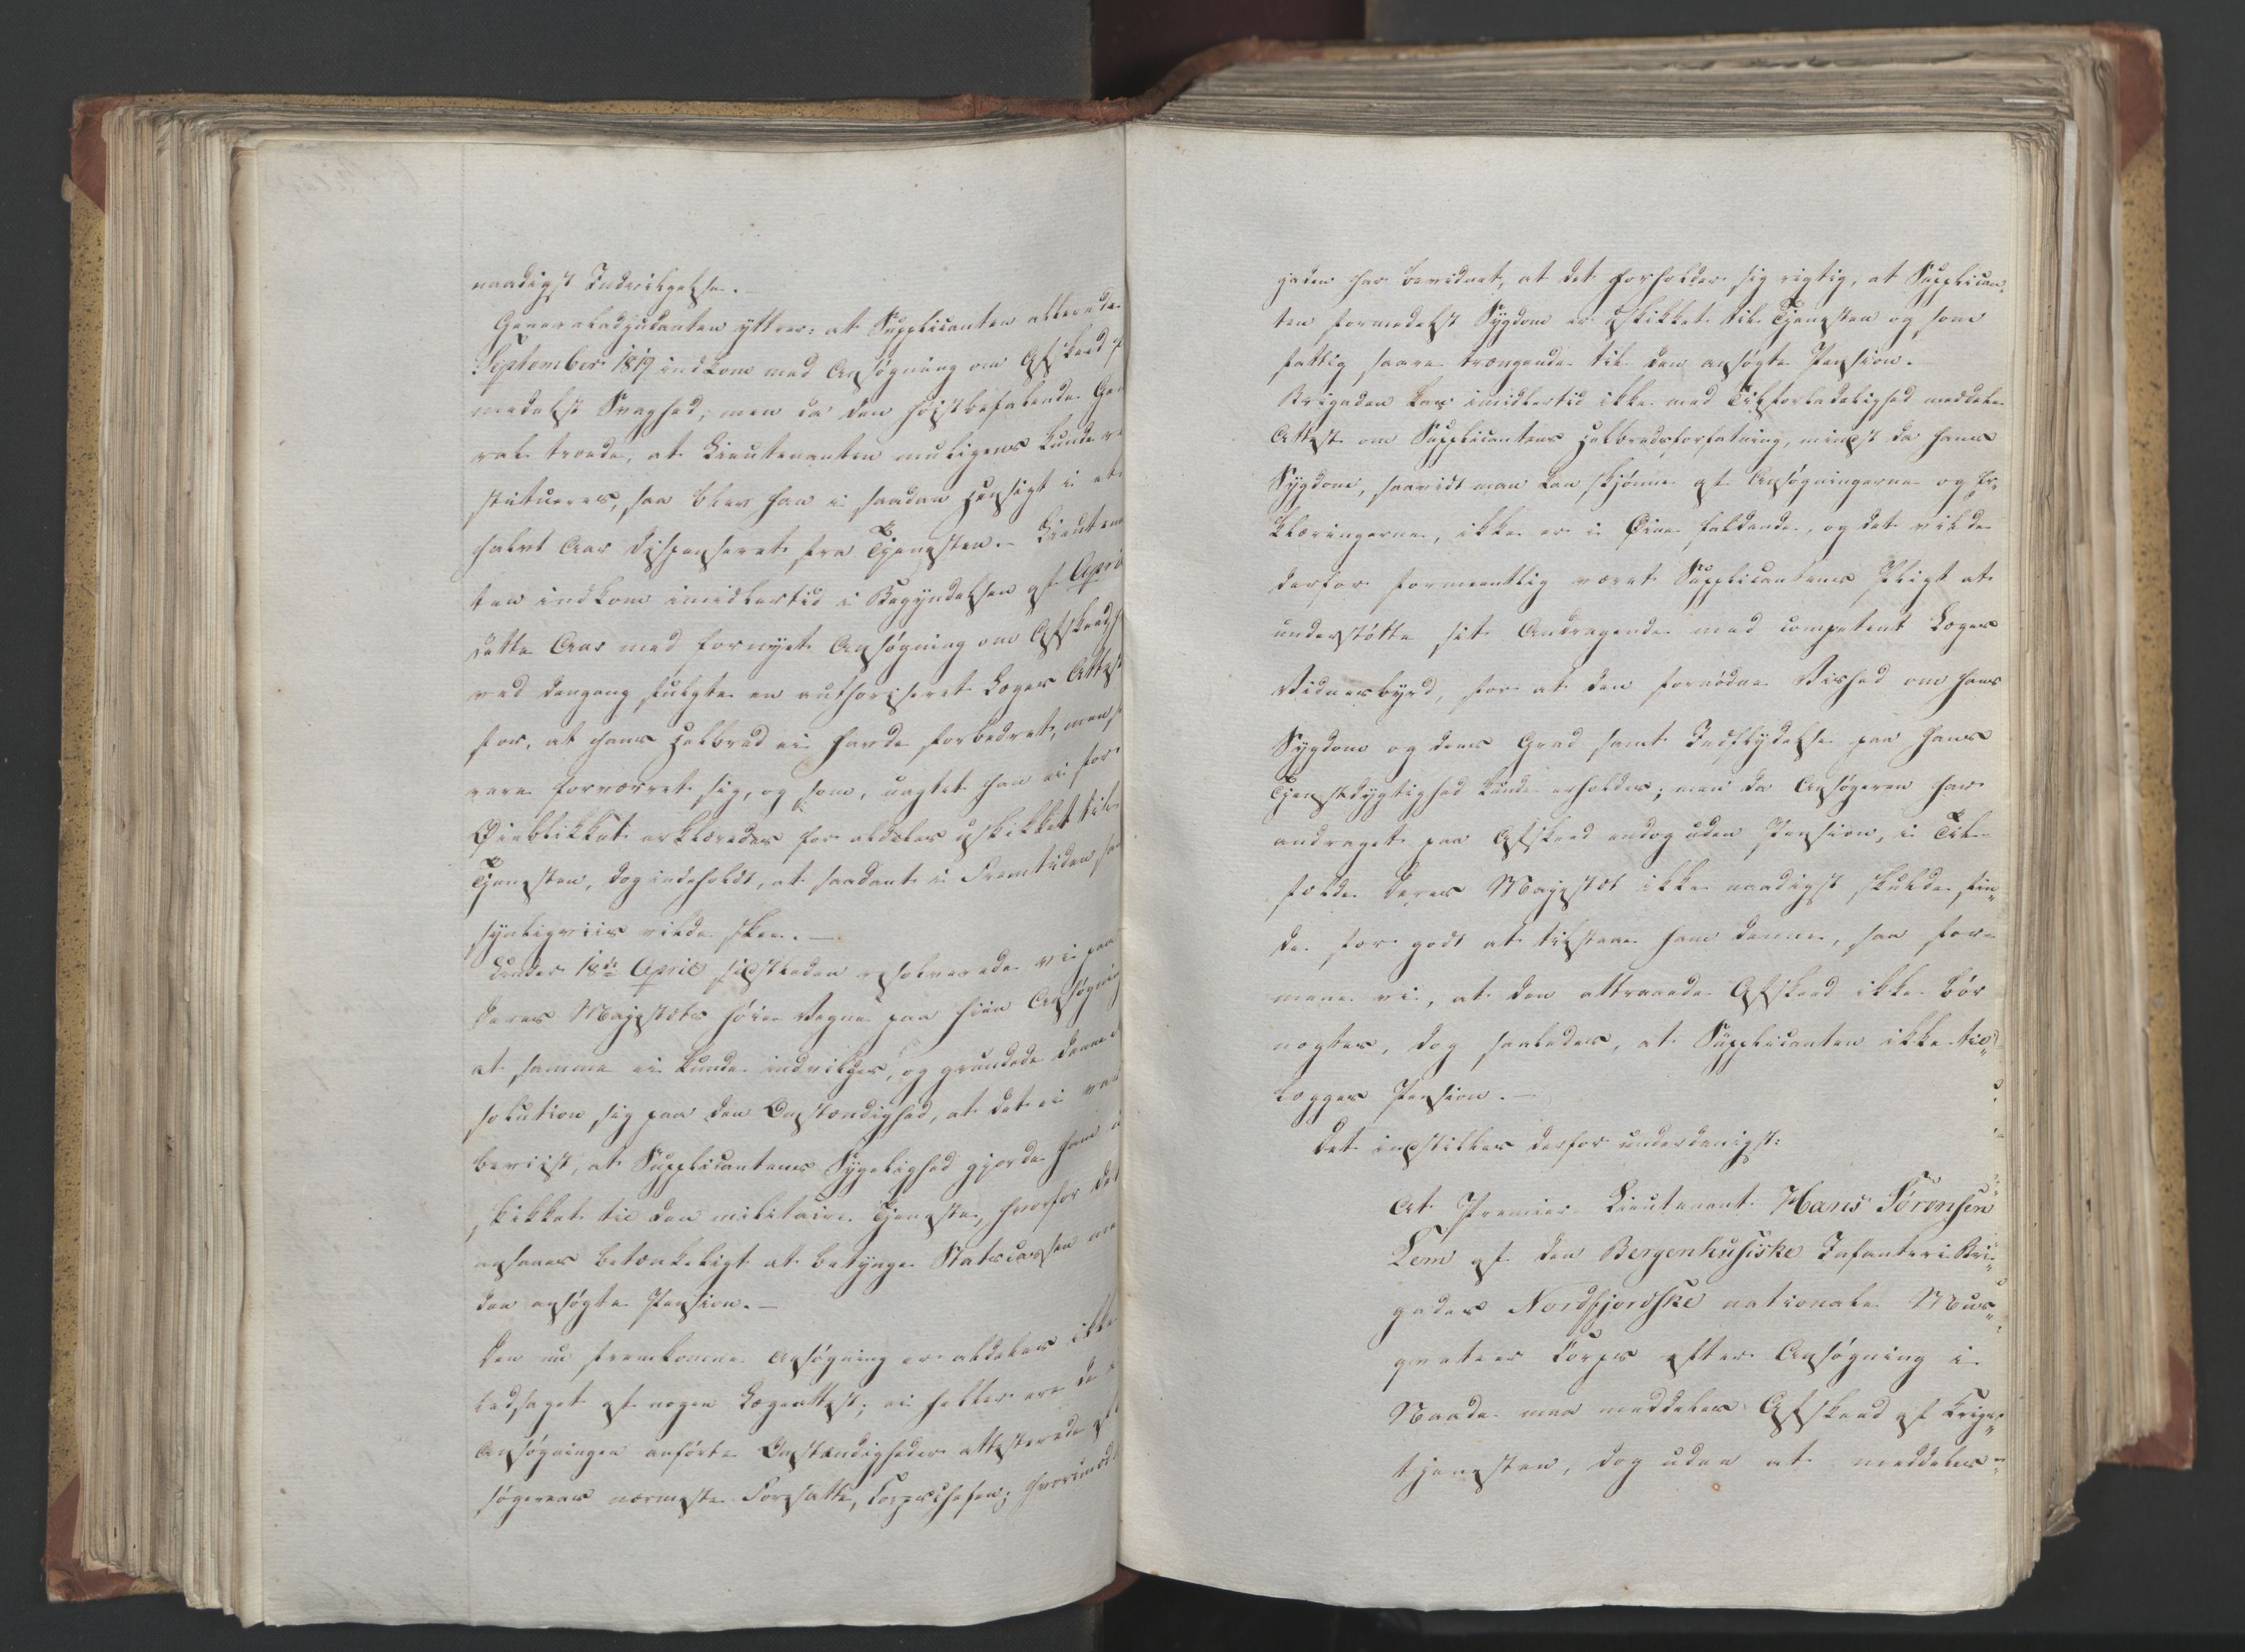 naadigst Indvilgelse. —
Generaladjudanten yttrer: at Supplicanten allerede
September 1819 indkom med Ansøgning om Afskeed f
medelst Svaghed; men da den høistbefalende Gen
ral troede, at Lieutenanten muligens kunde re
stitueres, saa blev han i saadan Hensigt i et
halvt Aar dispenseret fra Tjenesten. – Lieutenan
ten indkom imidlertid i Begyndelsen af April
dette Aar med fornyet Ansøgning om Afskeed,
ved dengang fulgte en authoriseret Læges Attest
for, at hans Helbred ei havde forbedret, men
vere forværret sig, og som, uagtet han ei for
Øieblikket erklæredes for aldeles uskikket til
Tjenesten, dog indeholdt, at saadant i Fremtiden san
synligviis vilde skee. —
Under 18de April sidstleden resolverede vi paa
Deres Majestæts høie Vegne paa hiin Ansøgning
at samme ei kunde indvilges, og grundede denne
solution sig paa den Omstændighed, at det ei var
beviist, at Supplicantens Sygelighed gjorde ham u
skikket til den militaire Tjeneste, hvorfor det
ansaaes betænkeligt at betynge Statscassen med
den ansøgte Pension. —
Den nu fremkomne Ansøgning er aldeles ikke
ledsaget af nogen Lægeattest; ei heller ere de i
Ansøgningen anførte Omstændigheder attesterede af
søgerens nærmeste Foresatte, Corpschefen; hvorimod
gaden har bevidnet, at det forholder sig rigtig, at Supplican„
ten formedelst Sygdom er uskikket til Tjenesten og som
fattig saare trængende til den ansøgte Pension.
Brigaden kan imidlertid ikke med Tilforladelighed meddele
Attest om Supplicantens Helbredsforfatning, mindst da hans
Sygdom, saavidt man kan skjønne af Ansøgningerne og Er„
klæringerne, ikke er i Øine faldende, og det vilde
derfor formeentlig været Supplicantens Pligt at
understøtte sit Andragende med competent Læges
Vidnesbyrd, for at den fornødne Vished om hans
Sygdom og dens Grad samt Indflydelse paa hans
Tjenstdygtighed kunde erholdes; men da Ansøgeren har
andraget paa Afskeed endog uden Pension, i Til-
fælde Deres Majestæt ikke naadigst skulde fin„
de for godt at tilstaae ham denne, saa for-
mene vi, at den attraaede Afskeed ikke bør
nægtes, dog saaledes, at Supplicanten ikke til„
lægges Pension. —
Det indstilles derfor underdanigst:
At Premier Lieutenant Hans Sørensen
Lem af den Bergenhusiske Infanteri Bri„
gades Nordfjordske nationale Mus„
qveteer Corps efter Ansøgning i
Naade maa meddeles Afskeed af Krigs„
tjenesten, dog uden at meddeles